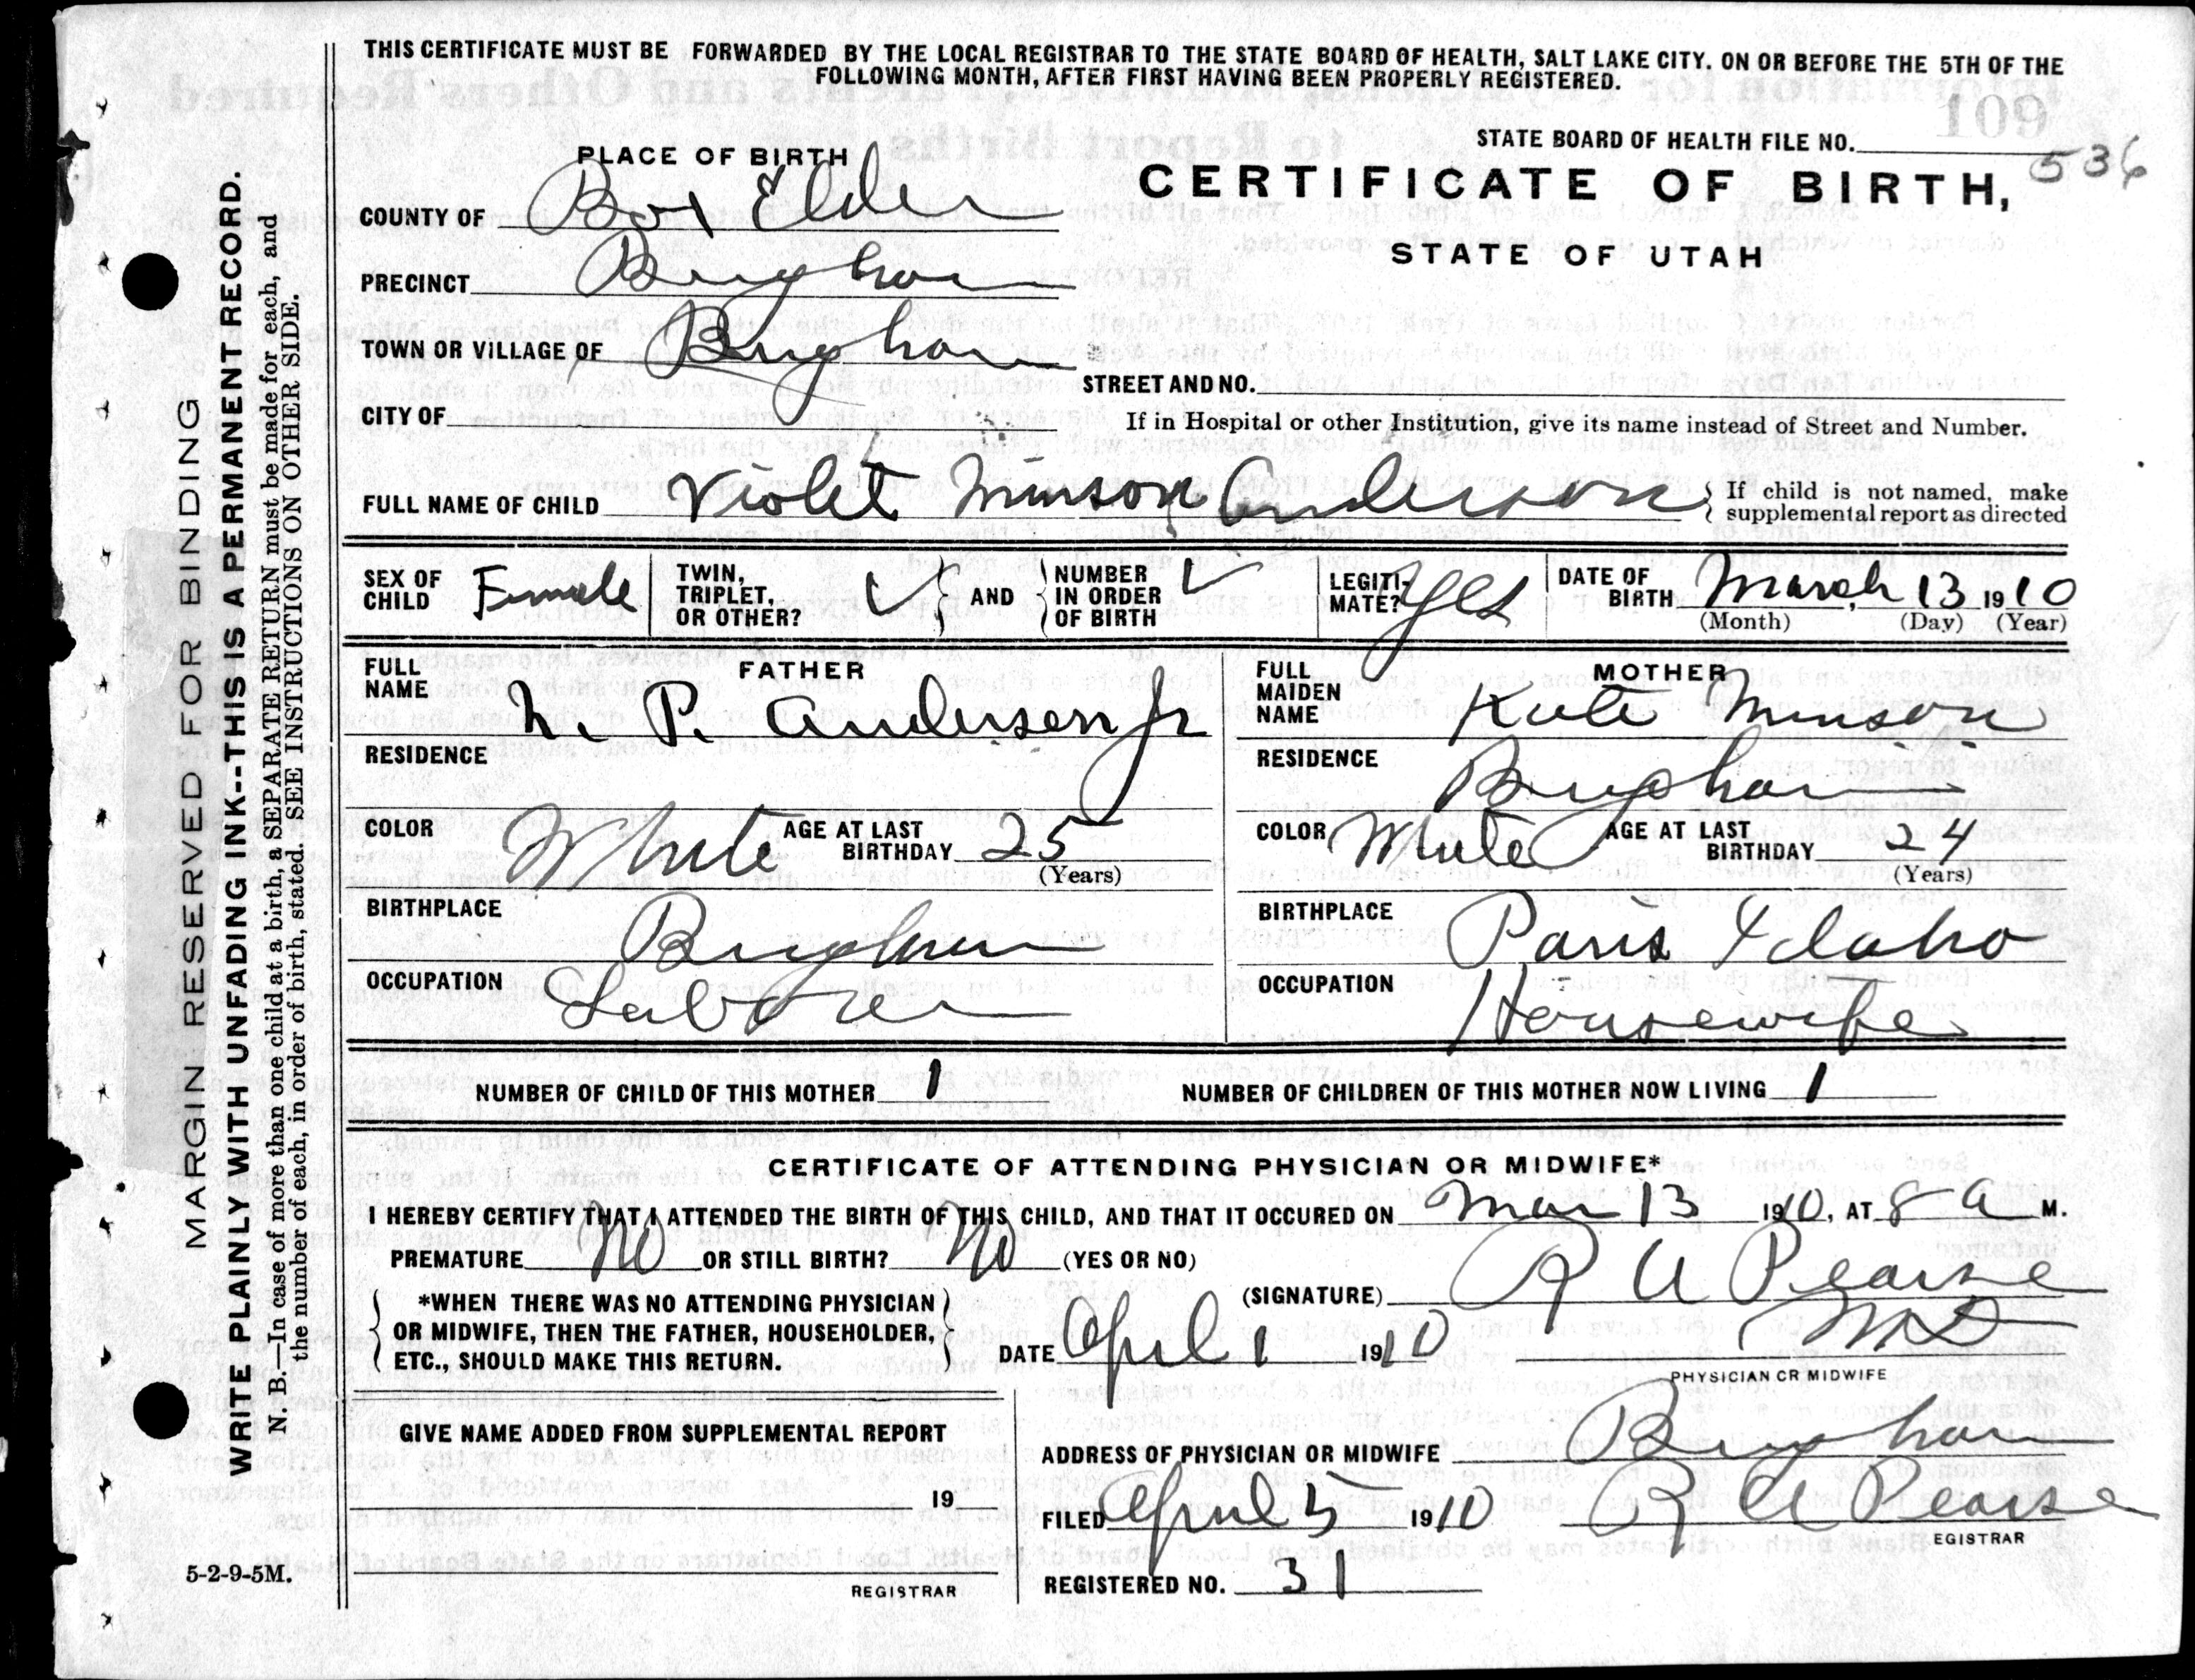 THIS CERTIFICATE MUST BE FORWARDED BY THE LOCAL REGISTRAR TO THE STATE BOARD OF HEALTH, SALT LAKE CITY. ON OR BEFORE THE 5TH OF THE
FOLLOWING MONTH, AFTER FIRST HAVING BEEN PROPERLY REGISTERED.
109
STATE BOARD OF HEALTH FILE NO. 536
PLACE OF BIRTH
CERTIFICATE OF BIRTH,
STATE OF UTAH
COUNTY OF Box Elder
PRECINCT Brigham
TOWN OR VILLAGE OF Brigham
STREET AND NO.
CITY OF
If in Hospital or other Institution, give its name instead of Street and Number.
FULL NAME OF CHILD Violet Minson Anderson { If child is not named, make
supplemental report as directed
SEX OF CHILD Female
TWIN, TRIPLET, OR OTHER? AND NUMBER IN ORDER OF BIRTH
LEGITIMATE? Yes
DATE OF BIRTH March 13 1910
(Month) (Day) (Year)
FATHER
FULL NAME P. Andersen Jr
RESIDENCE
COLOR White AGE AT LAST BIRTHDAY 25
(Years)
BIRTHPLACE Brigham
OCCUPATION Laborer
MOTHER
FULL MAIDEN NAME Kate Minson
RESIDENCE Brigham
COLOR White AGE AT LAST BIRTHDAY 24
(Years)
BIRTHPLACE Paris Idaho
OCCUPATION Housewife
NUMBER OF CHILD OF THIS MOTHER 1 NUMBER OF CHILDREN OF THIS MOTHER NOW LIVING 1
CERTIFICATE OF ATTENDING PHYSICIAN OR MIDWIFE*
I HEREBY CERTIFY THAT I ATTENDED THE BIRTH OF THIS CHILD, AND THAT IT OCCURED ON Mar 13 1910, AT 8 a M.
PREMATURE No OR STILL BIRTH? No (YES OR NO)
(SIGNATURE) R A Pearse
MD
PHYSICIAN OR MIDWIFE
*WHEN THERE WAS NO ATTENDING PHYSICIAN
OR MIDWIFE, THEN THE FATHER, HOUSEHOLDER,
ETC., SHOULD MAKE THIS RETURN.
DATE April 1 1910
GIVE NAME ADDED FROM SUPPLEMENTAL REPORT
19
REGISTRAR
ADDRESS OF PHYSICIAN OR MIDWIFE Brigham
FILED April 5 1910 R A Pearse
EGISTRAR
REGISTERED NO. 31
MARGIN RESERVED FOR BINDING
WRITE PLAINLY WITH UNFADING INK--THIS IS A PERMANENT RECORD.
N. B.—In case of more than one child at a birth, a SEPARATE RETURN must be made for each, and
the number of each, in order of birth, stated. SEE INSTRUCTIONS ON OTHER SIDE.
5-2-9-5M.